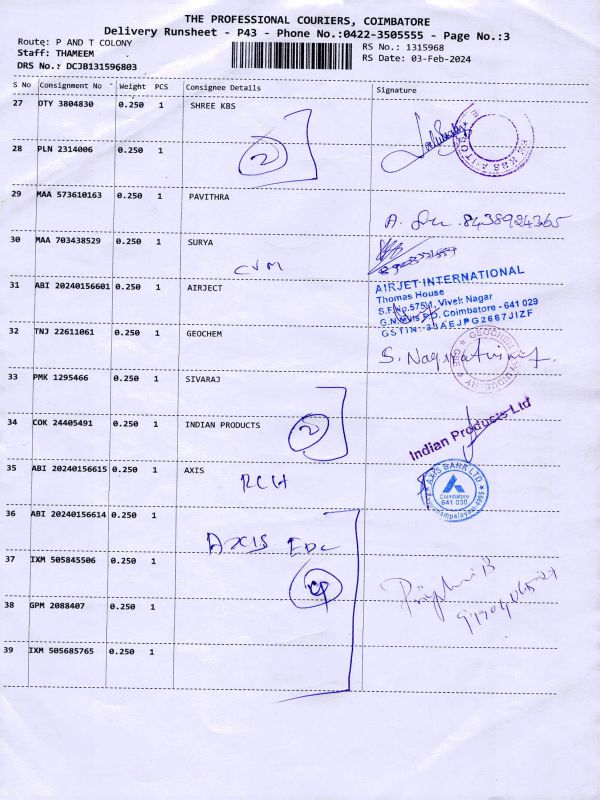 THE PROFESSIONAL COURIERS, COIMBATORE
Delivery Runsheet - P43 - Phone No.:0422-3505555 - Page No.:3
Route: P AND T COLONY
RS No.: 1315968
Staff: THAMEEM
RS Date: 03-Feb-2024
DRS No.: DCJB131596803
S No Consignment No Weight PCS Consignee Details Signature
27 OTY 3804830 0.250 1 SHREE KBS
28 PLN 2314006 0.250 1
2
29 MAA 573610163 0.250 1 PAVITHRA
A. 8438924365
30 MAA 703438529 0.250 1 SURYA
CVM
31 ABI 20240156601 0.250 1 AIRJECT
AIRJET INTERNATIONAL
Thomas House
S.F.No.575/1, Vivek Nagar
G.N.Mills P.O, Coimbatore - 641 029
GSTIN: 33AEJPG2667J1ZF
32 TNJ 22611061 0.250 1 GEOCHEM
33 PMK 1295466 0.250 1 SIVARAJ
34 COK 24405491 0.250 1 INDIAN PRODUCTS
2
Indian Products Ltd
35 ABI 20240156615 0.250 1 AXIS
RCH
AXIS BANK LTD
Coimbatore
641 030
36 ABI 20240156614 0.250 1
AXIS EDC
37 IXM 505845506 0.250 1
38 GPM 2088407 0.250 1
39 IXM 505685765 0.250 1